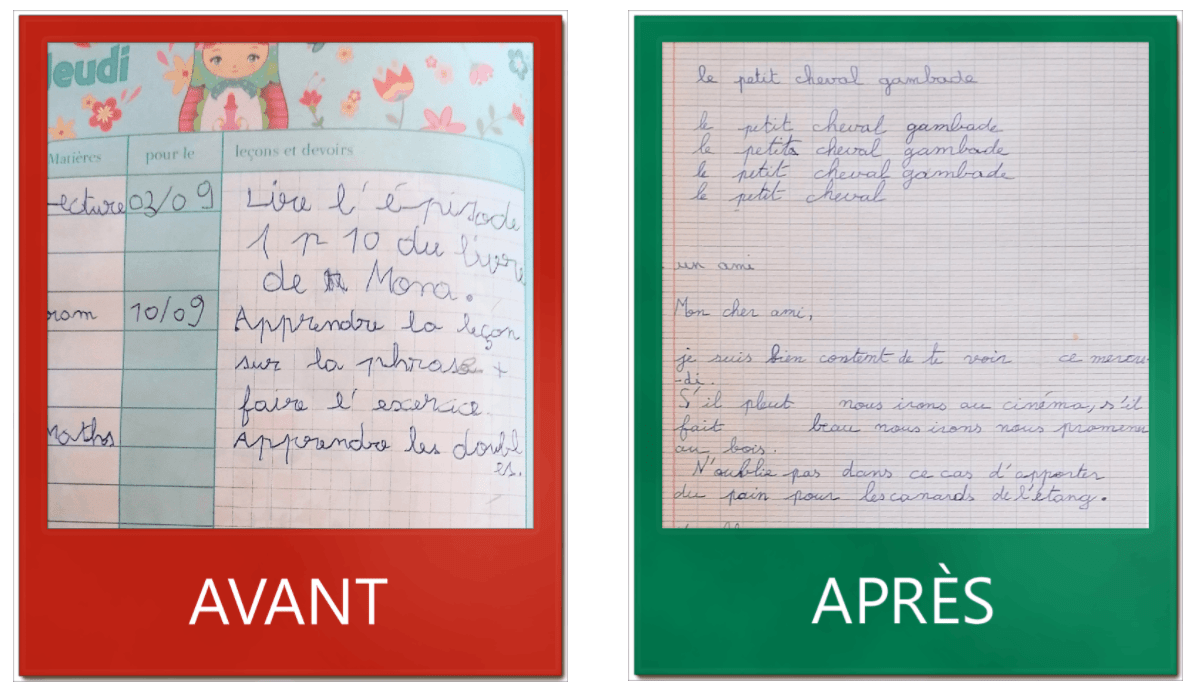 Jeudi
Matières
pour le
leçons et devoirs
Lecture 03/09 Lire l'épisode
1 p 10 du livre
de Mona.
ram 10/09 Apprendre la leçon
sur la phrase +
faire l'exercice.
Maths Apprendre les doubl
es.
AVANT
le petit cheval gambade
le petit cheval gambade
le petits cheval gambade
le petit cheval gambade
le petit cheval
un ami
Mon cher ami,
je suis bien content de te voir ce mercre
-di.
S'il pleut nous irons au cinéma, s'il
fait beau nous irons nous promener
au bois.
N'oublie pas dans ce cas d'apporter
du pain pour les canards de l'étang.
APRÈS